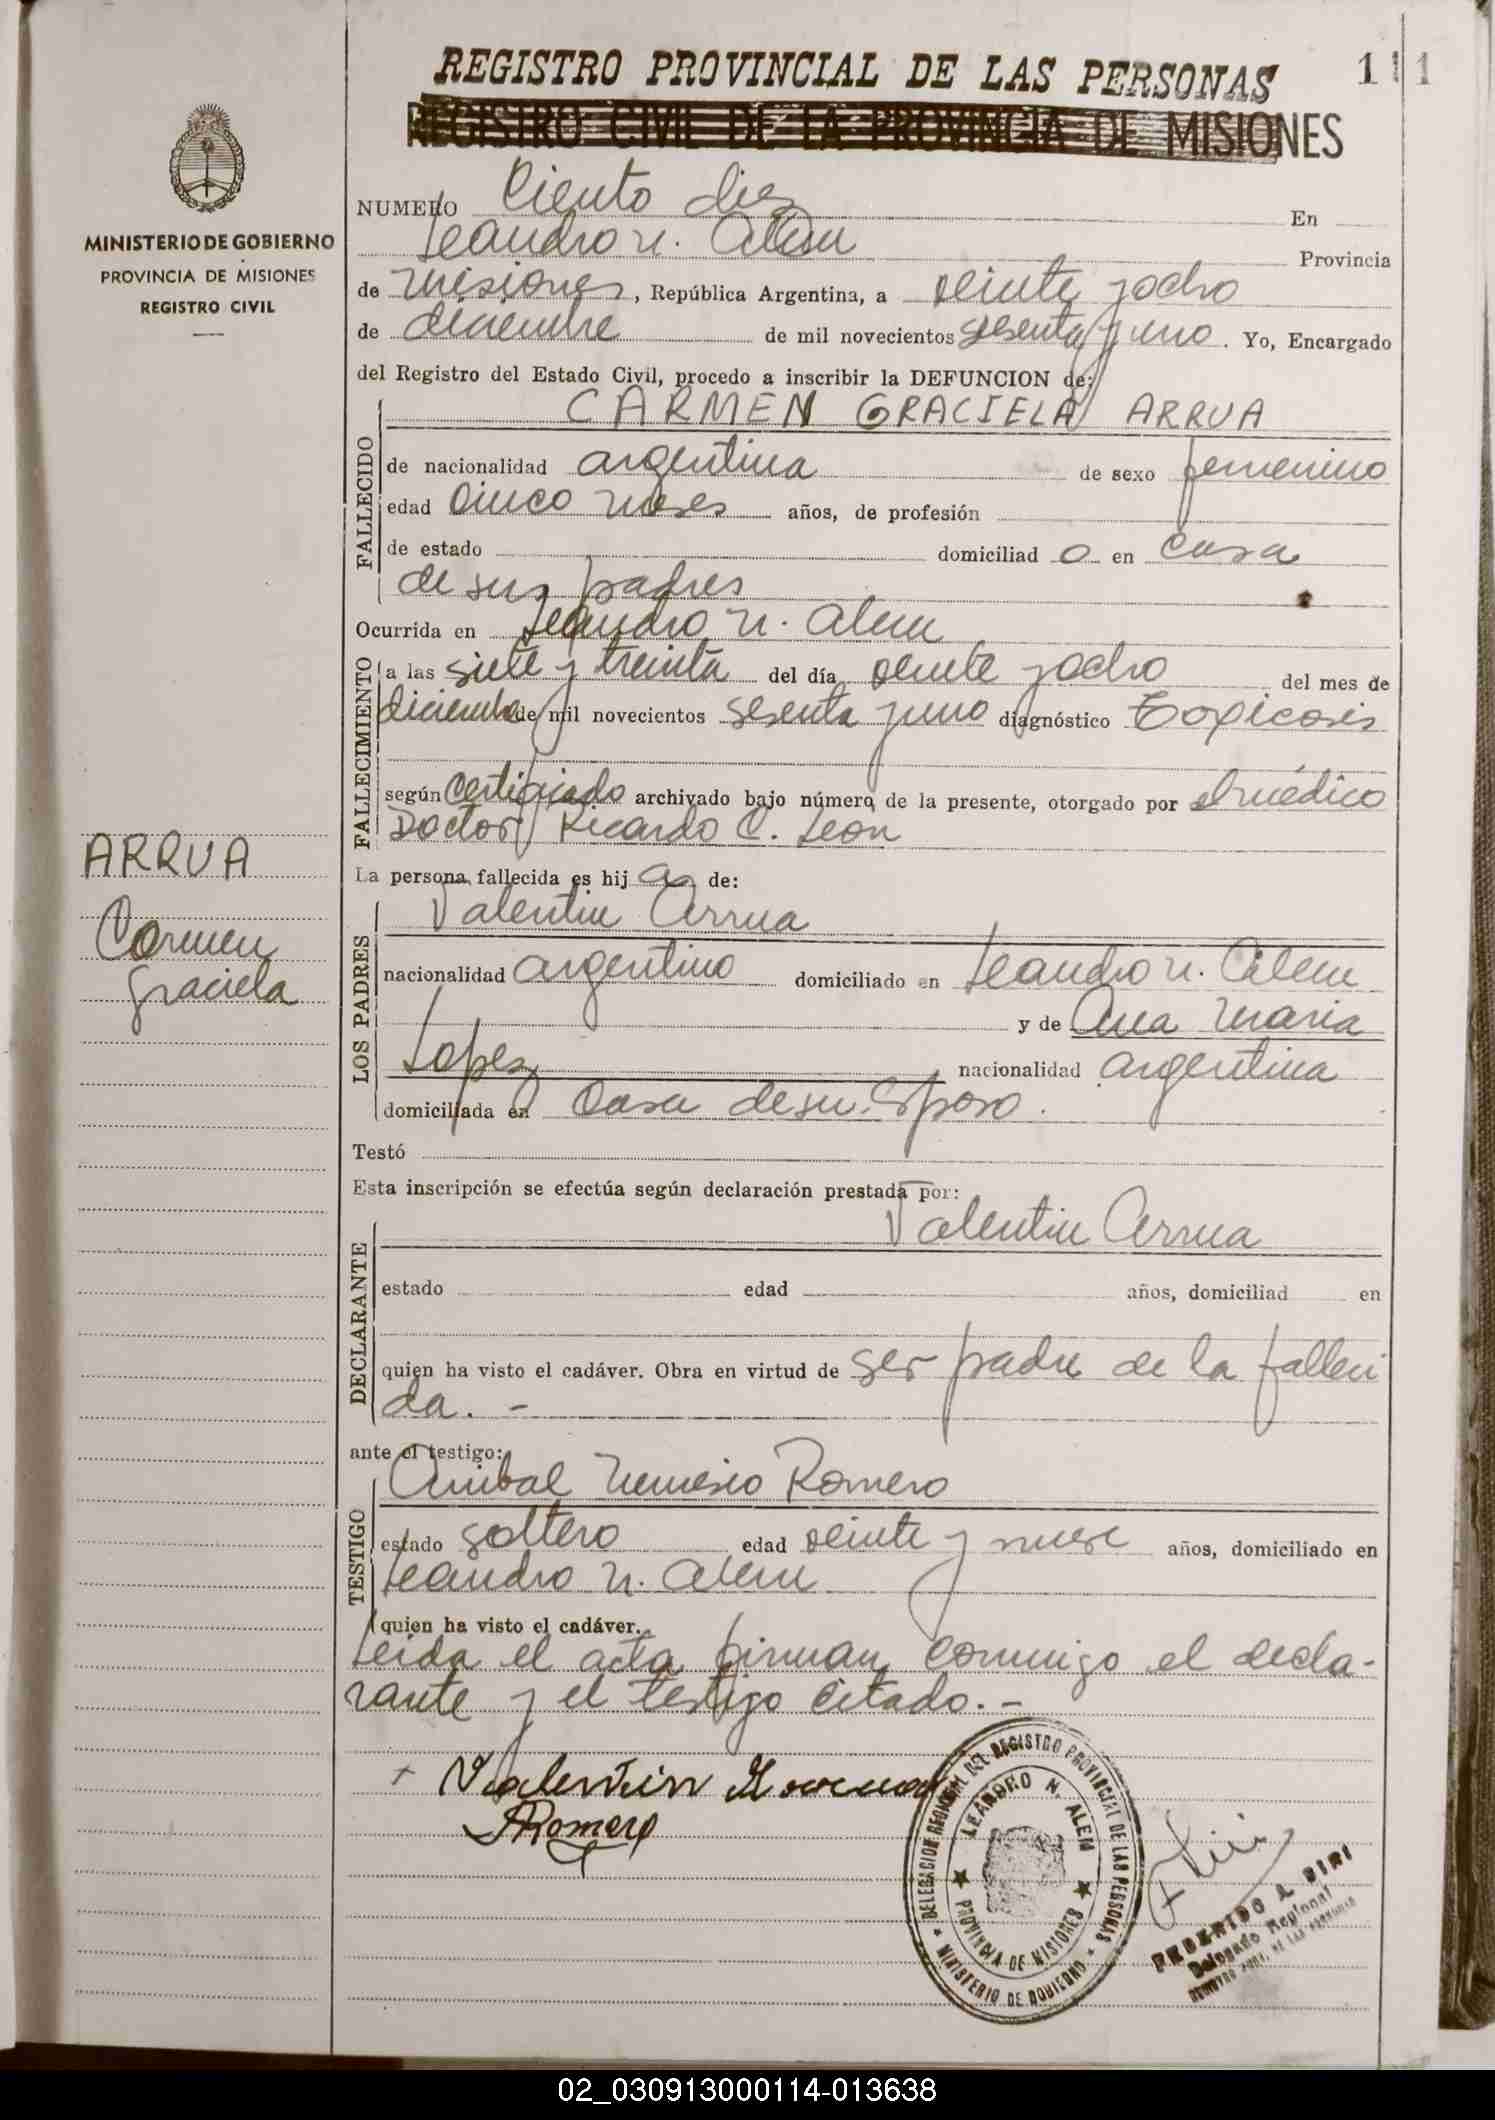 REGISTRO PROVINCIAL DE LAS PERSONAS 111
REGISTRO CIVIL DE LA PROVINCIA DE MISIONES
MINISTERIO DE GOBIERNO
PROVINCIA DE MISIONES
REGISTRO CIVIL
NUMERO Ciento diez En
Leandro N. Alem Provincia
de Misiones, República Argentina, a veinte y ocho
de diciembre de mil novecientos sesenta y uno. Yo, Encargado
del Registro del Estado Civil, procedo a inscribir la DEFUNCION de:
CARMEN GRACIELA ARRUA
FALLECIDO
de nacionalidad argentina de sexo femenino
edad cinco meses años, de profesión
de estado domiciliad a en casa
de sus padres
Ocurrida en Leandro N. Alem
FALLECIMIENTO
a las siete y treinta del día veinte y ocho del mes de
diciembre de mil novecientos sesenta y uno diagnóstico Toxicosis
según Certificado archivado bajo número de la presente, otorgado por el médico
Doctor Ricardo C. Leon
ARRUA
Carmen
Graciela
La persona fallecida es hij a de:
LOS PADRES
Valentin Arrua
nacionalidad argentino domiciliado en Leandro N. Alem
y de Ana Maria
Lopez nacionalidad argentina
domiciliada en Casa de su Esposo.
Testó
Esta inscripción se efectúa según declaración prestada por:
DECLARANTE
Valentin Arrua
estado edad años, domiciliad en
quien ha visto el cadáver. Obra en virtud de ser padre de la falleci
da. -
ante el testigo:
TESTIGO
Anibal Nemesio Romero
estado soltero edad veinte y nueve años, domiciliado en
Leandro N. Alem
quien ha visto el cadáver.
Leida el acta, firman conmigo el decla-
rante y el testigo citado. -
+ Valentin Arrua
ARomero
DELEGACION REGIONAL DEL REGISTRO PROVINCIAL DE LAS PERSONAS
LEANDRO N. ALEM
PROVINCIA DE MISIONES
MINISTERIO DE GOBIERNO
FEDERICO A. SIRI
Delegado Regional
02_030913000114-013638